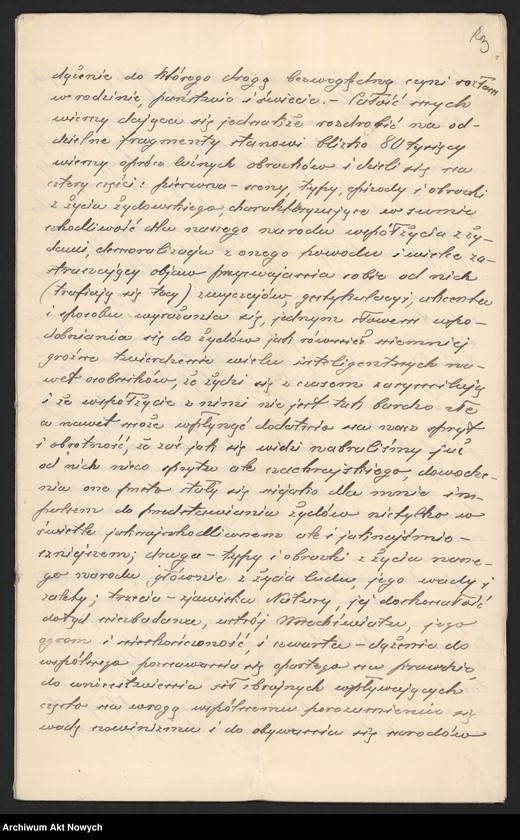 dążenie do którego drogą bezwzględną czyni rozłam
w rodzinie, państwie i świecie. – Całość mych
wierszy dająca się jednakże rozdrobić na od-
dzielne fragmenty stanowi blizko 80 tysięcy
wierszy oprócz luźnych obrazków i dzieli się na
cztery części: pierwsza – sceny, typy, epizody i obrazki
z życia żydowskiego, charakteryzujące w sumie
szkodliwość dla naszego narodu współżycia z ży-
dami, demoralizacją z onego powodu i wielce za-
straszający objaw przyswajania sobie od nich
(trafiają się tacy) zwyczajów, gestykulacyi, akcentu
i sposobu wyrażania się, jednym słowem upo-
dobniania się do żydów jak również niemniej
groźne twierdzenie wielu inteligentnych na-
wet osobników, że żydzi się z czasem zasymilują
i że współżycie z nimi nie jest tak bardzo złe
a nawet może wpłynąć dodatnio na nasz spryt
i obrotność, że zaś jak się widzi nabraliśmy już
od nich nieco sprytu ale szachrajskiego, dowodze-
nia one przeto stały się niejako dla mnie im-
pulsem do przedstawiania żydów nietylko w
świetle jaknajszkodliwszem ale i jaknajśmie-
szniejszem; druga – typy i obrazki z życia nasze-
go narodu głównie z życia ludu, jego wady i
zalety; trzecia – zjawiska Natury, jej doskonałość
dotąd niezbadana, ustrój Wszechświata, jego
ogrom i nieskończoność, i czwarta – dążenie do
wspólnego poznawania się opartego na prawdzie,
do unicestwienia sił zbrojnych wpływających
często na wrogą wspólnemu porozumieniu się
wadę szowinizmu i do obywania się narodów
Archiwum Akt Nowych